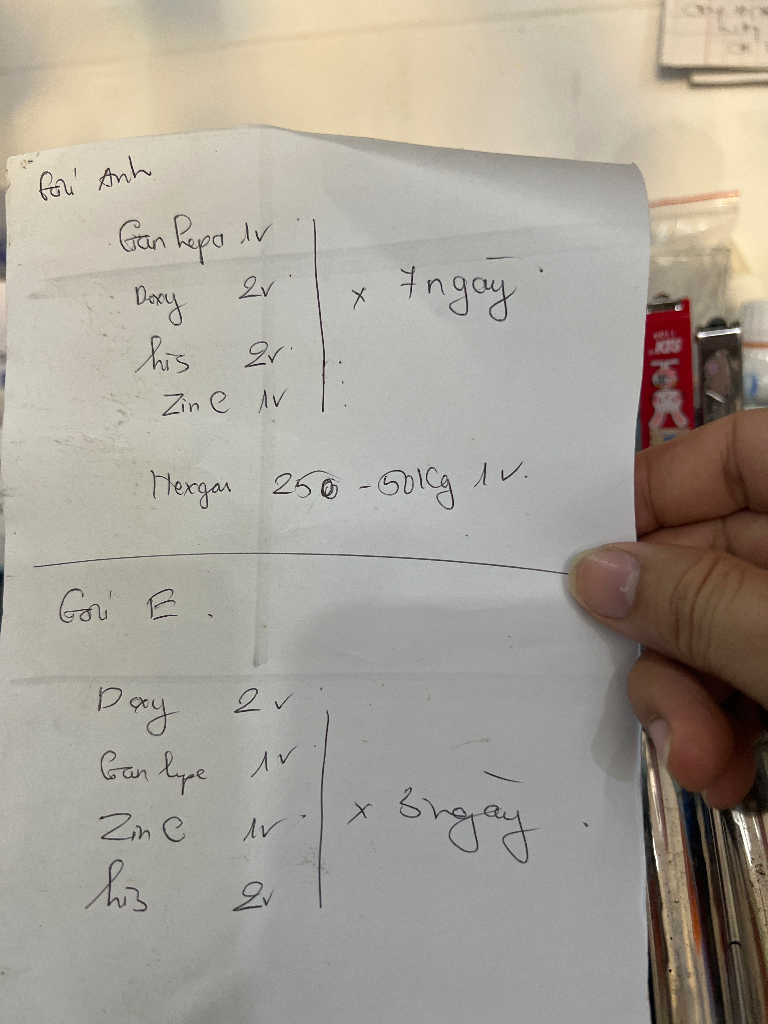 Gói Anh
Gan hepa 1v
Doxy 2v
his 2v
Zin C 1v
x 7 ngày
Hexgan 250 - 50Kg 1v.
Gói E.
Doxy 2v
Gan hepe 1v
Zin C 1v
his 2v
x 3 ngày